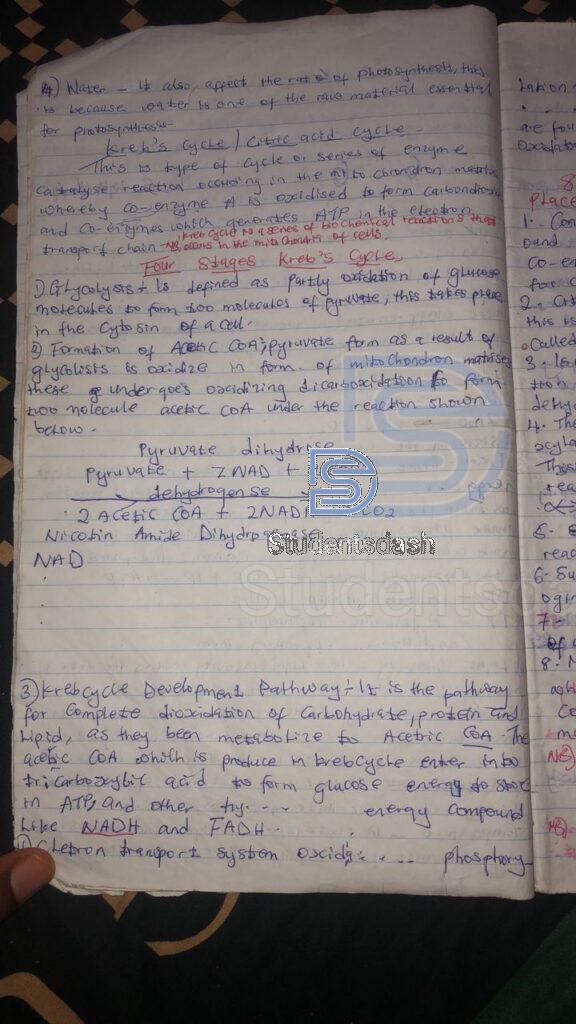 4) Water - It also affect the rate of photosynthesis, this
is because water is one of the raw material essential
for photosynthesis.
Kreb's Cycle / Citric acid Cycle.
This is type of cycle or series of enzyme
Catalyse reaction occuring in the mitochondron matrix
whereby co-enzyme A is oxidised to form carbondioxide
and co-enzymes which generates ATP in the electron
transport chain
kreb cycle is a series of biochemical reactions that
occurs in the mitochondria of cells.
Four Stages Kreb's Cycle
1) Glycolysis :- Is defined as partly oxidation of glucose
molecules to form two molecules of pyruvate, this takes place
in the Cytosin of a cell.
2) Formation of Acetic COA; pyruvate form as a result of
glycolists is oxidize in form of mitochondron matrixes
these undergoes oxidizing dicarboxidation to form
two molecule acetic COA under the reaction shown
below.
Pyruvate dihydrose
Pyruvate + 2NAD +
dehydrogense
2 Acetic COA + 2NADH
Nicotin Amide
NAD
DS
Studentsdash
3) Krebcycle Development Pathway :- It is the pathway
for complete dioxidation of carbohydrate, protein and
lipid, as they been metabolize to Acetric COA. The
acetic COA which is produce in krebcycle enter into
tricarboxylic acid to form glucose energy to store
in ATP, and other energy compound
Like NADH and FADH.
transport system phosphory-
lation
are four
place
1. Con
ound
Co-en
for
this is
Called
3-
tion
dehy
4. The
Thes
rea
reac
6. Su
7-
8.
NB
NB